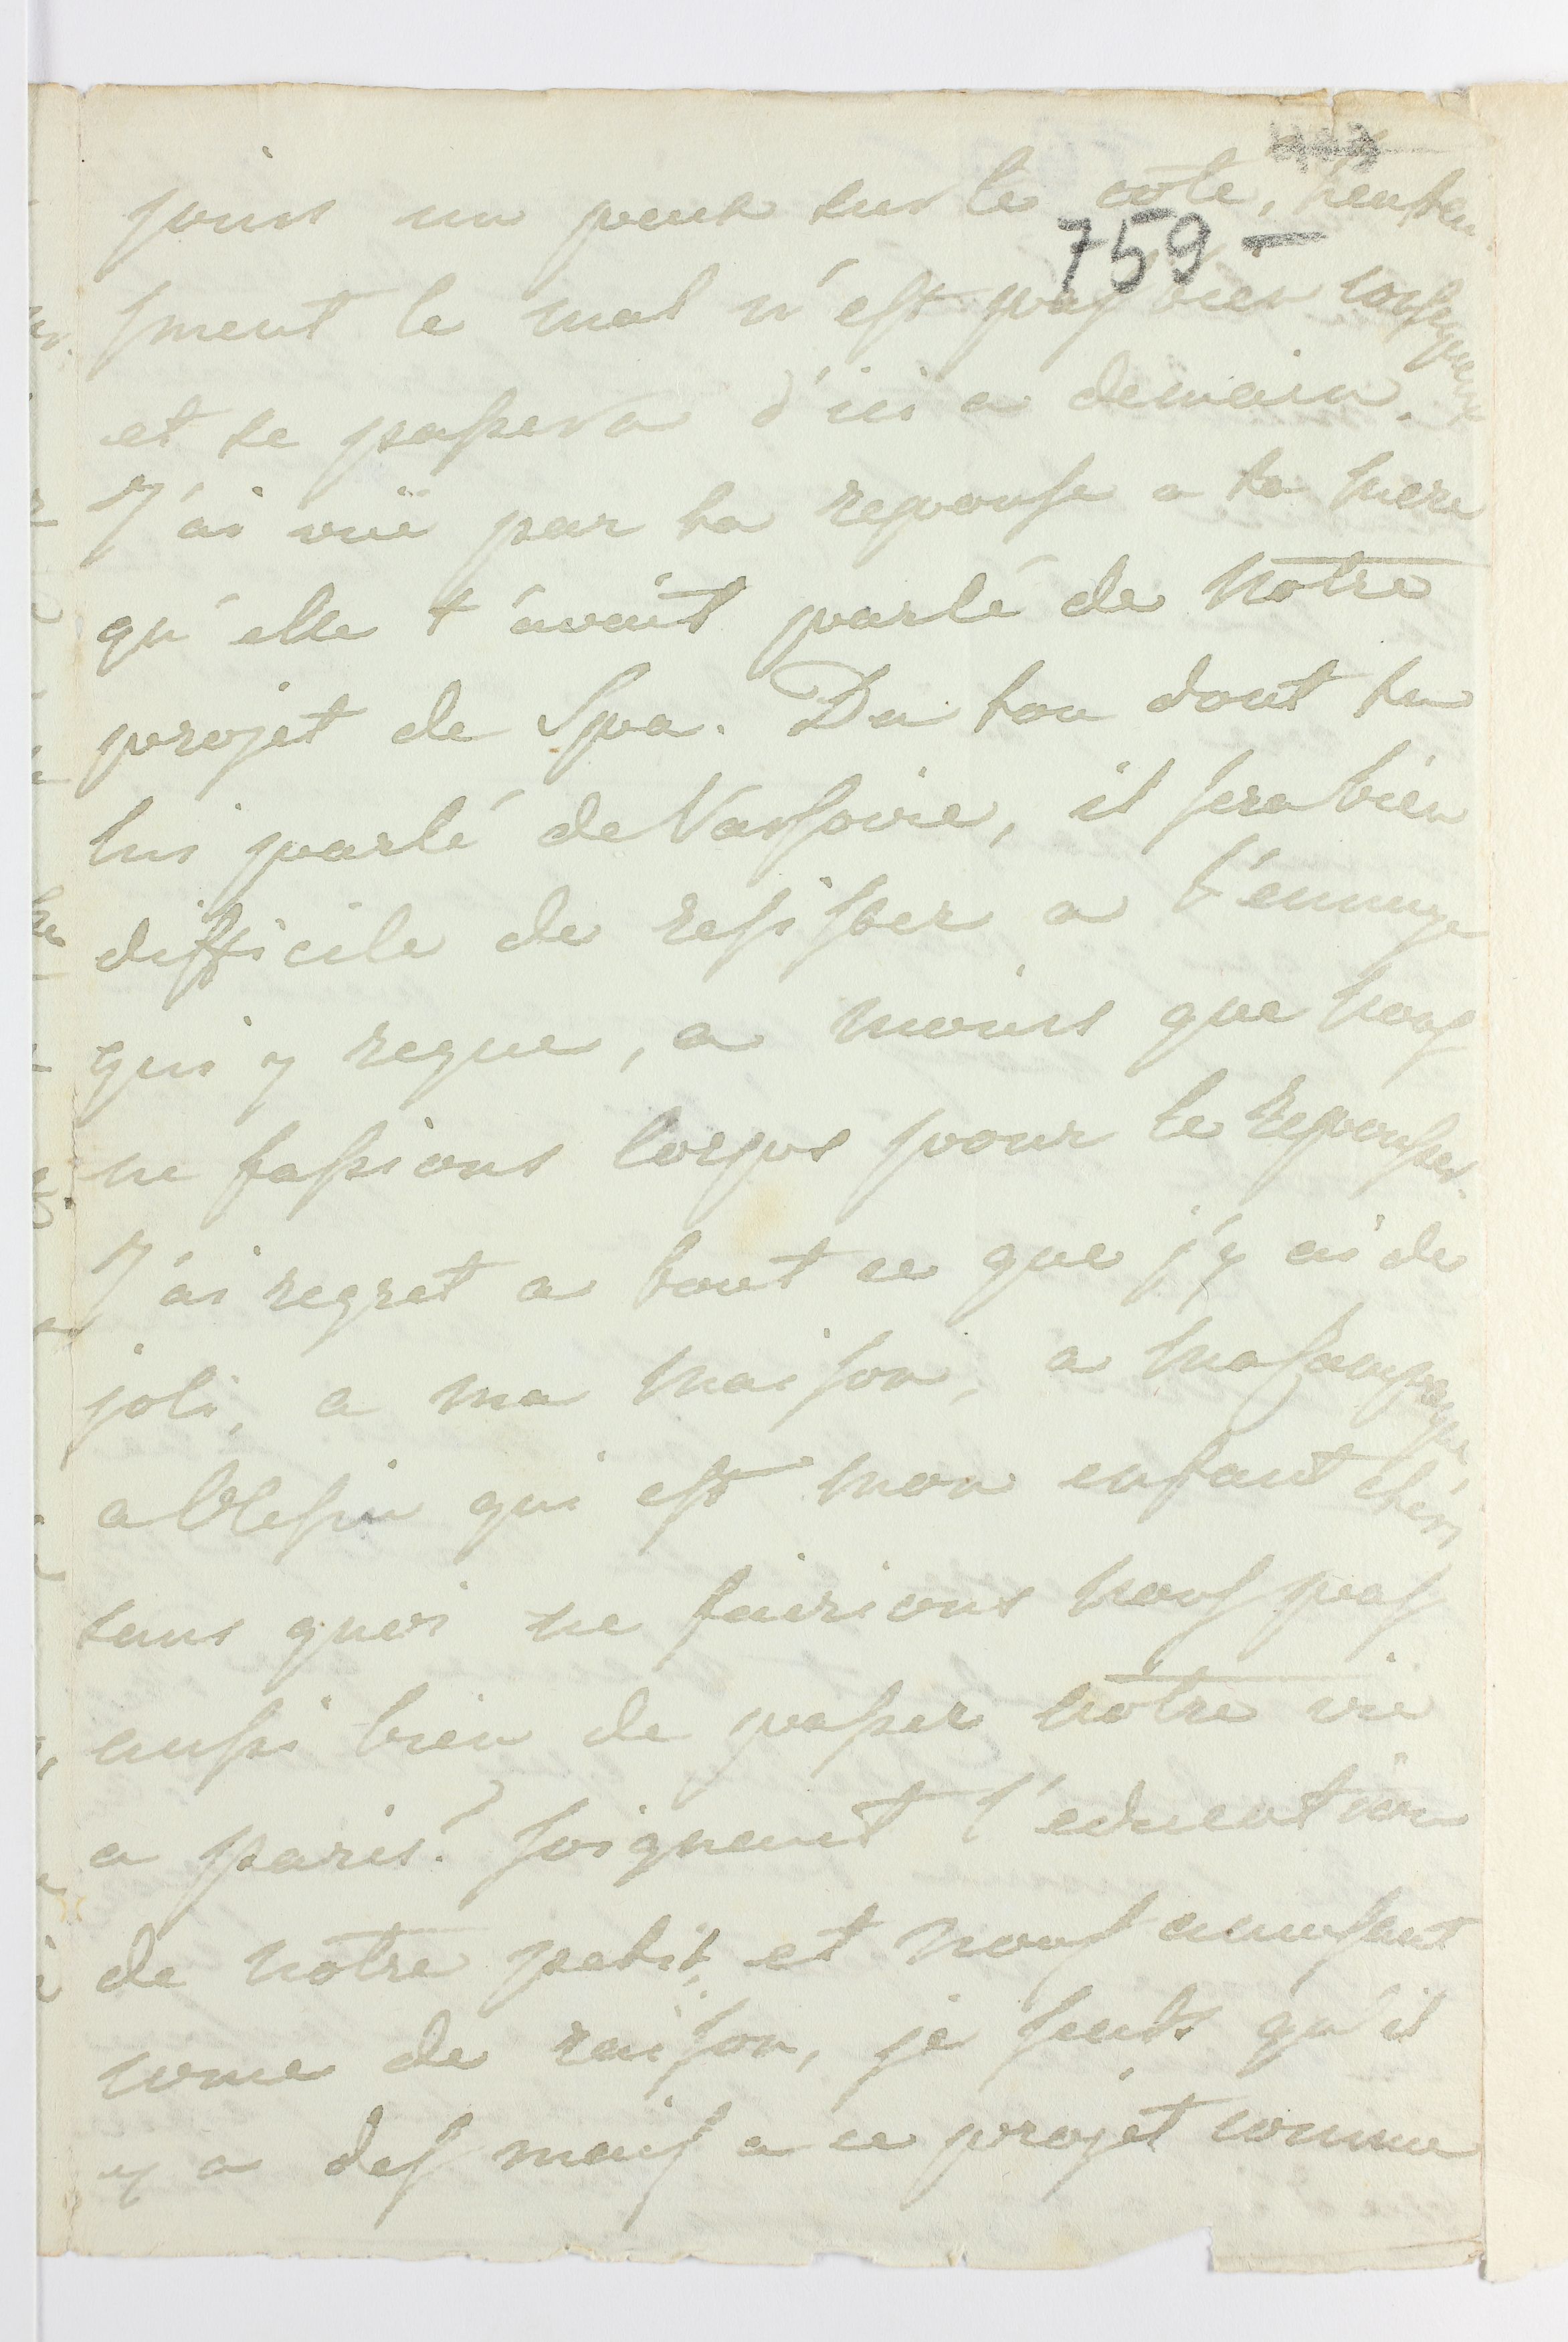 759 —
jours un peux sur le côte, heureu-
sment le mal n'est pas bien consequent
et se passera d'ici a demain.
J'ai vuë par ta reponse a ta mere
qu'elle t'avait parlé de nôtre
projet de Spa. Du ton dont tu
lui parlé de Varsovie, il sera bien
difficile de resister a l'ennuye
qui y regne, a moins que nous
ne fassions corps pour le repousser.
J'ai regret a tout ce que j'y ai de
joli, a ma maison, a ma campagne,
a qui est mon enfant cheri
sans quoi ne fairions nous pas
aussi bien de passer nôtre vie
a paris? soignant l'education
de nôtre petit, et nous amusant
come de raison, je sents qu'il
y a des mais a ce projet comme